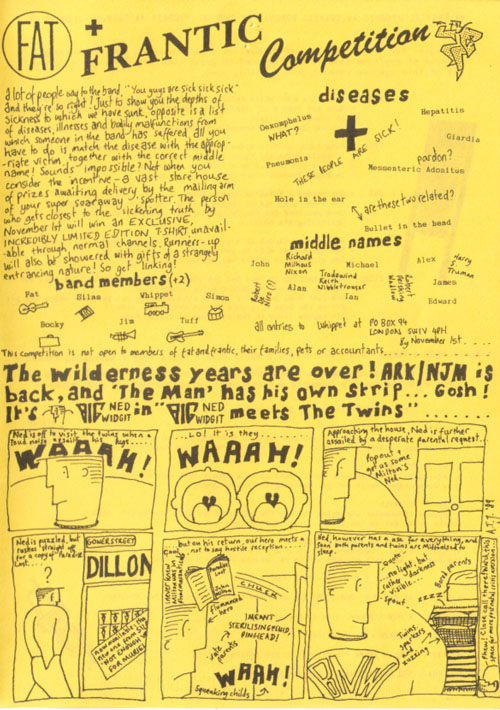 FAT + FRANTIC Competition
a lot of people say to the band, "You guys are sick sick sick"
and they're so right! Just to show you the depths of
sickness to which we have sunk, opposite is a list
of diseases, illnesses and bodily malfunctions from
which someone in the band has suffered. all you
have to do is match the disease with the approp-
-riate victim, together with the correct middle
name! Sounds impossible? Not when you
consider the incentive - a vast storehouse
of prizes awaiting delivery by the mailing arm
of your super soaraway spotter. The person
who gets closest to the "sickening truth by
November 1st will win an EXCLUSIVE,
INCREDIBLY LIMITED EDITION, T-SHIRT unavail-
-able through normal channels. Runners-up
will also be showered with gifts of a strangely
entrancing nature! So get linking!
diseases
Oezomphelus
WHAT?
Hepatitis
Giardia
pardon?
THESE PEOPLE ARE SICK!
Pneumonia
Messenteric Adonitus
Hole in the ear
are these two related?
Bullet in the head
middle names
John
Richard Milhous Nixon
Michael
Alex
Harry S. Truman
Alan
Tradewind
Keith
Nibbletrouger
Ian
James
Edward
band members (+2)
Fat
Silas
Whippet
Simon
Bocky
Jim
Tuff
all entries to Whippet at PO BOX 94
LONDON SW1V 4PH
By November 1st.....
This competition is not open to members of fat and frantic, their families, pets or accountants........
The wilderness years are over! ARK/NJM is
back, and 'The Man' has his own strip... Gosh!
It's BIG NED WIDGIT in "BIG NED WIDGIT meets The Twins"........
Ned is off to visit the twins when a
WAAAH!
..Lo! It is they....
WAAAH!
Approaching the house, Ned is further
assailed by a desperate parental request.
Pop out +
get us some
Milton's
Ned
Ned is puzzled, but
rushes straight off
for a copy of Paradise
Lost....
?
GOWER STREET
DILLON
but on his return, our hero meets a
not to say hostile reception....
Paradise Lost
John Milton
CHUCK
Flummoxed
hero
I MEANT
STERILISING FLUID,
PINHEAD!
irate
parents
WAAH!
Squeaking childs
Ned however has a use for everything, and
soon both parents and twins are Miltonised to
sleep.
Quote
..no light, but
rather darkness
visible....
Spout
zzzz
Bored parents
Twins,
speakers
and
zuzzing